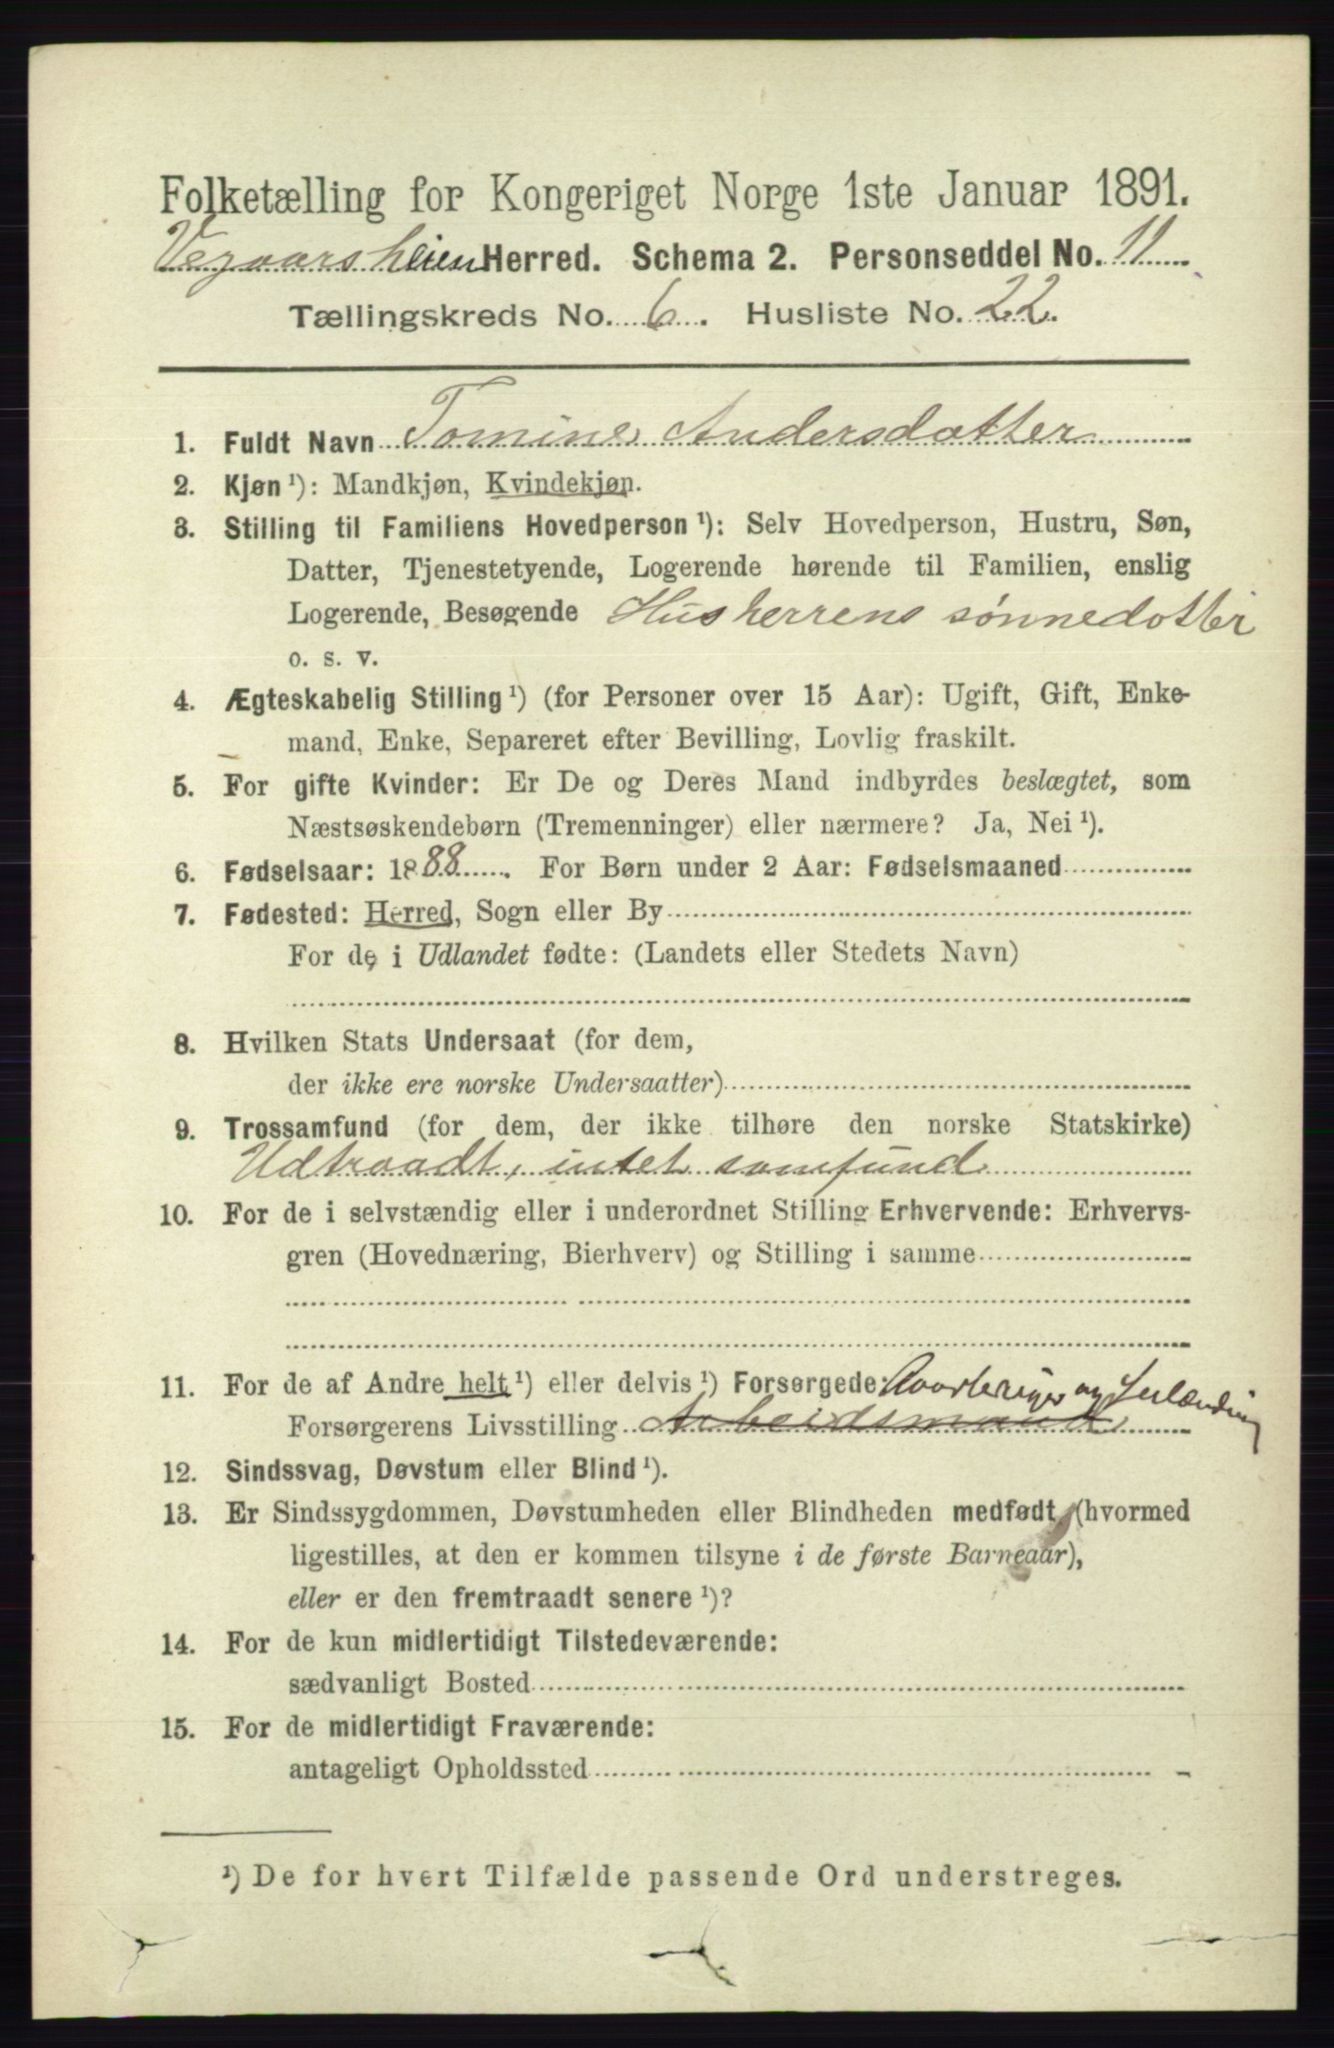 Folketælling for Kongeriget Norge 1ste Januar 1891.
Vegaarsheien Herred. Schema 2. Personseddel No. 11
Tællingskreds No. 6. Husliste No. 22.
1. Fuldt Navn Tomine Andersdatter
2. Kjøn ¹): Mandkjøn, Kvindekjøn.
3. Stilling til Familiens Hovedperson ¹): Selv Hovedperson, Hustru, Søn,
Datter, Tjenestetyende, Logerende hørende til Familien, enslig
Logerende, Besøgende Husherrens sønnedotter
o. s. v.
4. Ægteskabelig Stilling ¹) (for Personer over 15 Aar): Ugift, Gift, Enke-
mand, Enke, Separeret efter Bevilling, Lovlig fraskilt.
5. For gifte Kvinder: Er De og Deres Mand indbyrdes beslægtet, som
Næstsøskendebørn (Tremenninger) eller nærmere? Ja, Nei ¹).
6. Fødselsaar: 1888. For Børn under 2 Aar: Fødselsmaaned
7. Fødested: Herred, Sogn eller By
For de i Udlandet fødte: (Landets eller Stedets Navn)
8. Hvilken Stats Undersaat (for dem,
der ikke ere norske Undersaatter)
9. Trossamfund (for dem, der ikke tilhøre den norske Statskirke)
Udtraadt, intet samfund
10. For de i selvstændig eller i underordnet Stilling Erhvervende: Erhvervs-
gren (Hovednæring, Bierhverv) og Stilling i samme
11. For de af Andre helt ¹) eller delvis ¹) Forsørgede: og
Forsørgerens Livsstilling Arbeidsmand
12. Sindssvag, Døvstum eller Blind ¹).
13. Er Sindssygdommen, Døvstumheden eller Blindheden medfødt (hvormed
ligestilles, at den er kommen tilsyne i de første Barneaar),
eller er den fremtraadt senere ¹)?
14. For de kun midlertidigt Tilstedeværende:
sædvanligt Bosted
15. For de midlertidigt Fraværende:
antageligt Opholdssted
¹) De for hvert Tilfælde passende Ord understreges.